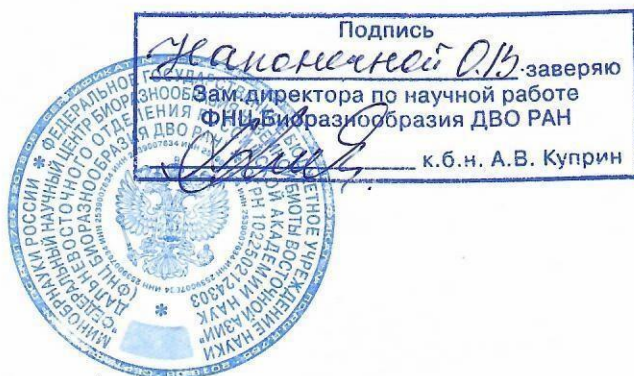 Подпись
Наконечной О.В. заверяю
Зам.директора по научной работе
ФНЦ Биоразнообразия ДВО РАН
к.б.н. А.В. Куприн
МИНОБРНАУКИ РОССИИ * ФЕДЕРАЛЬНОЕ ГОСУДАРСТВЕННОЕ БЮДЖЕТНОЕ УЧРЕЖДЕНИЕ НАУКИ
"ФЕДЕРАЛЬНЫЙ НАУЧНЫЙ ЦЕНТР БИОРАЗНООБРАЗИЯ БИОТЫ ВОСТОЧНОЙ АЗИИ"
ДАЛЬНЕВОСТОЧНОГО ОТДЕЛЕНИЯ РОССИЙСКОЙ АКАДЕМИИ НАУК
(ФНЦ БИОРАЗНООБРАЗИЯ ДВО РАН) ОГРН 1022502124303
ИНН 2539007634